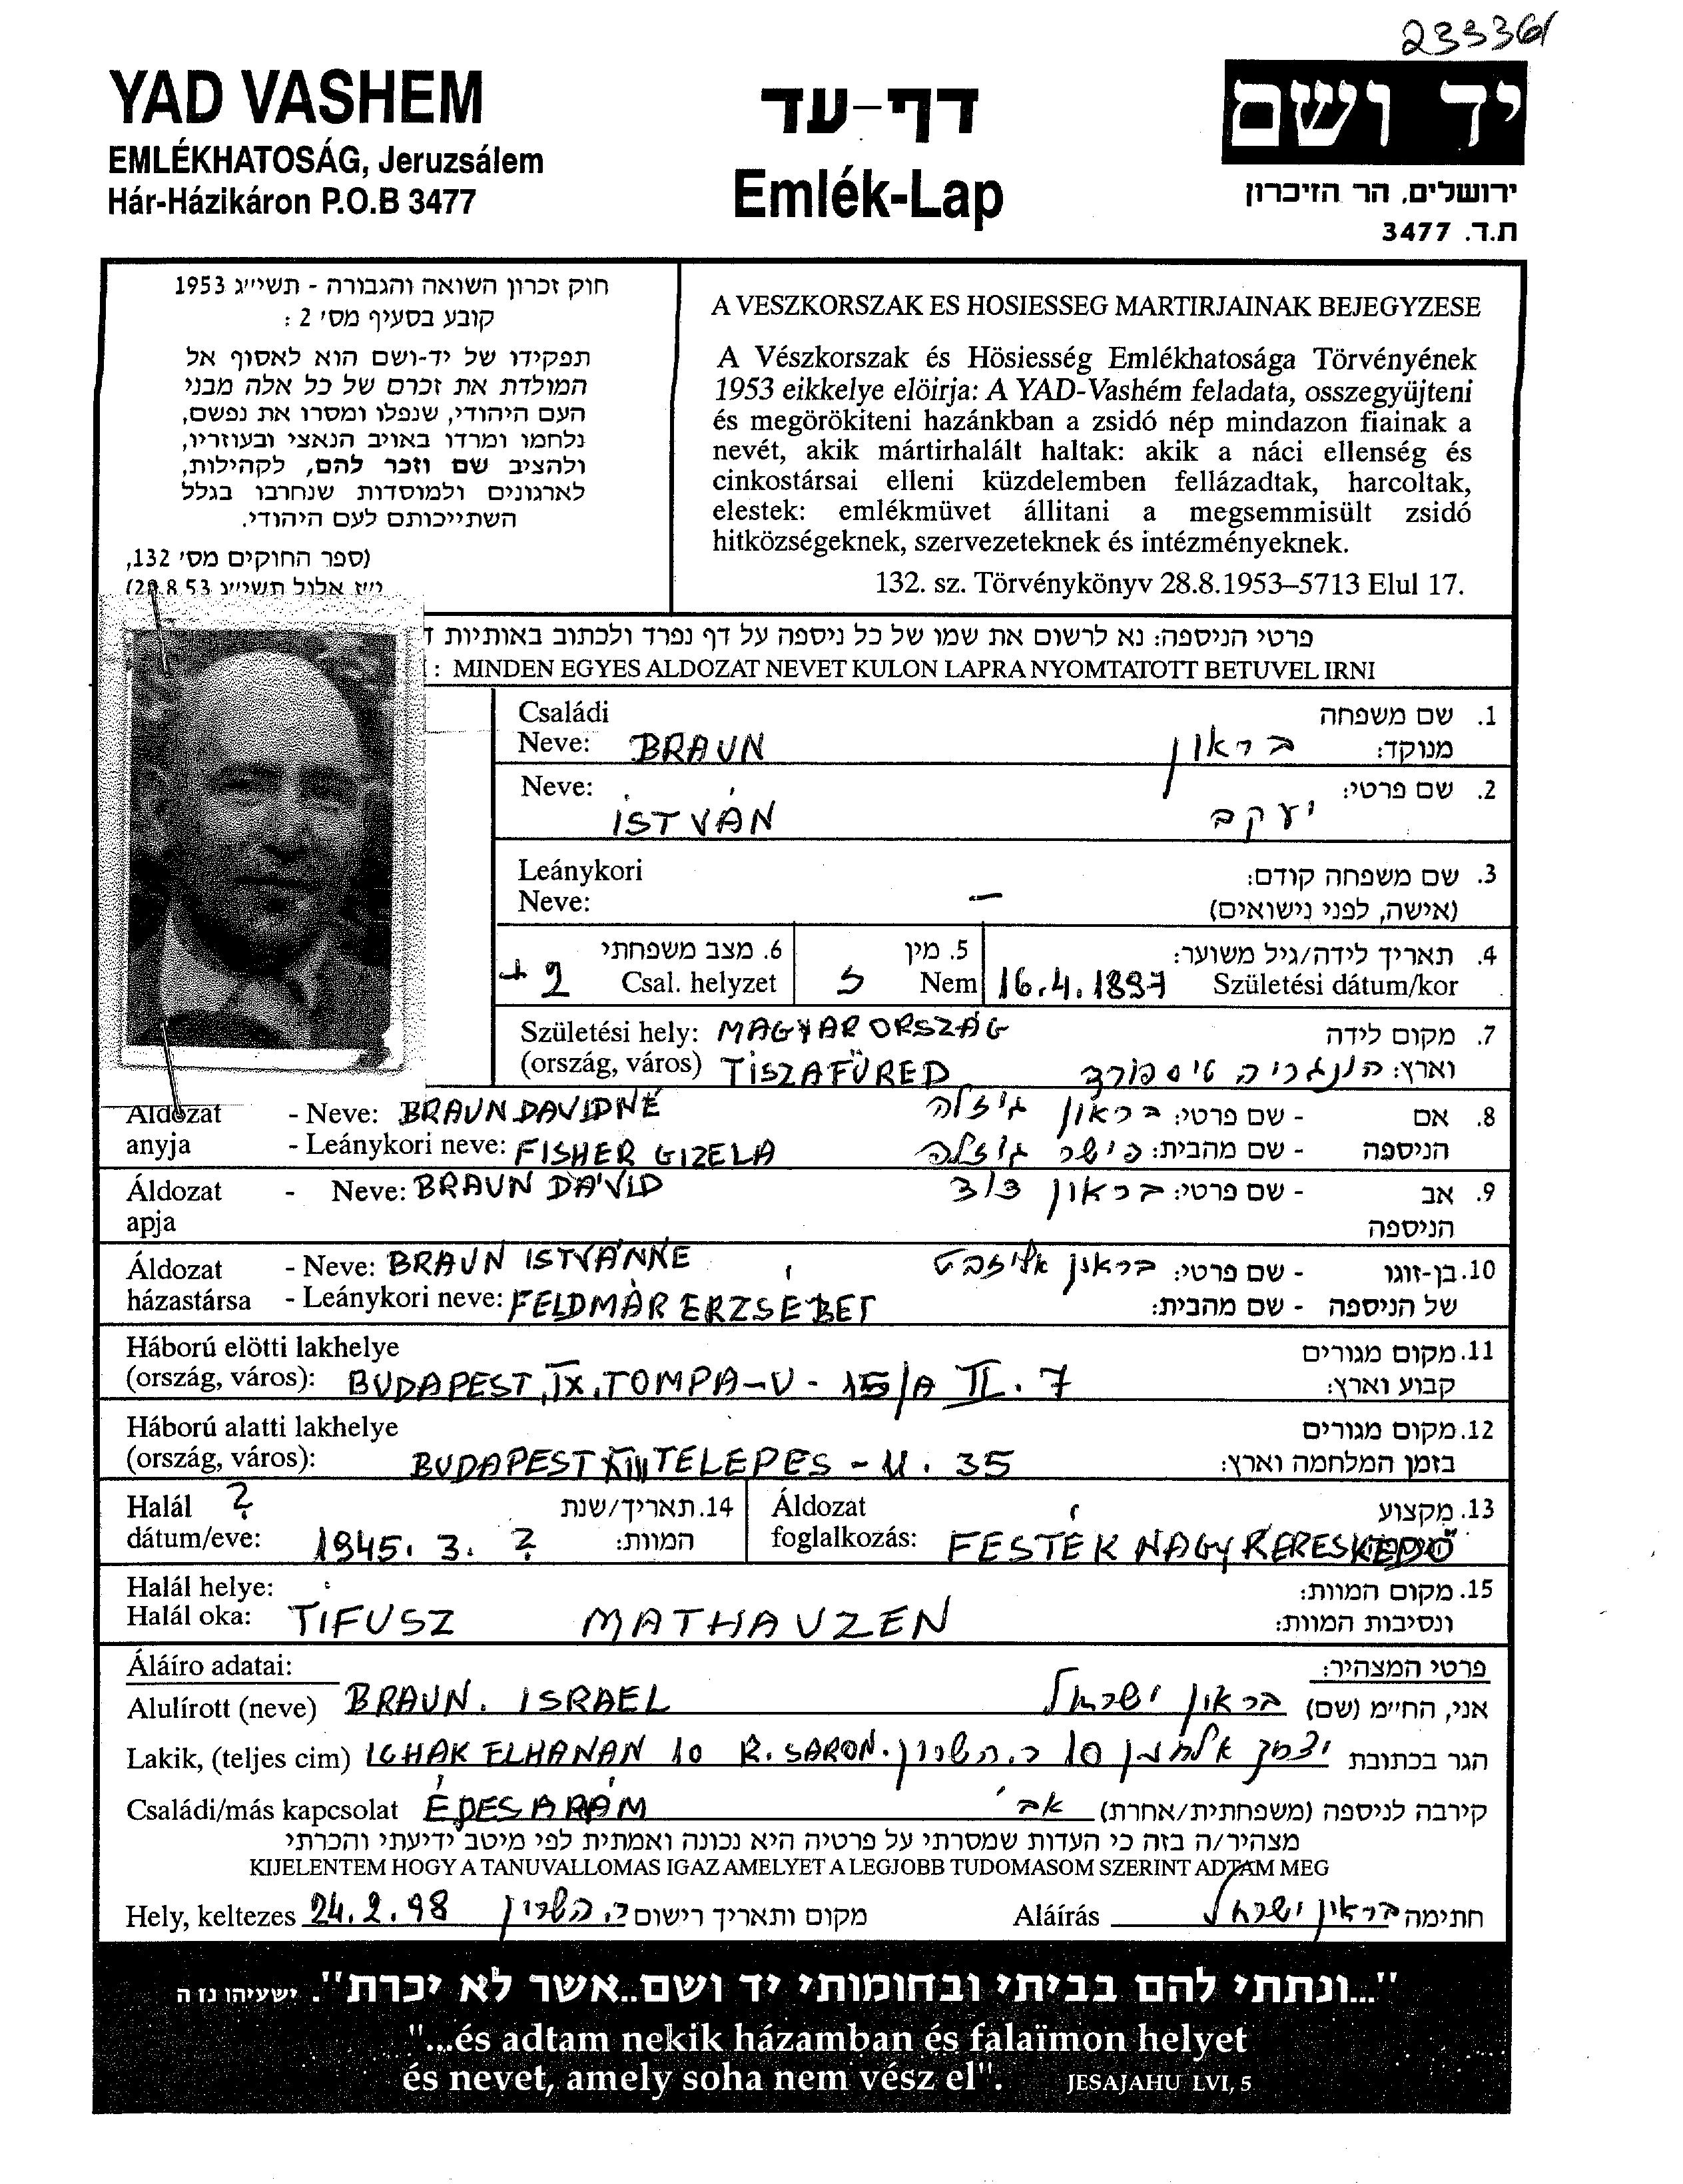 23336/
YAD VASHEM
EMLÉKHATOSÁG, Jeruzsálem
Hár-Házikáron P.O.B 3477
דף-עד
Emlék-Lap
יד ושם
ירושלים, הר הזיכרון
ת.ד. 3477
חוק זכרון השואה והגבורה - תשי״ג 1953
קובע בסעיף מס׳ 2 :
תפקידו של יד-ושם הוא לאסוף אל
המולדת את זכרם של כל אלה מבני
העם היהודי, שנפלו ומסרו את נפשם,
נלחמו ומרדו באויב הנאצי ובעוזריו,
ולהציב שם וזכר להם, לקהילות,
לארגונים ולמוסדות שנחרבו בגלל
השתייכותם לעם היהודי.
(ספר החוקים מס׳ 132,
י״ז אלול תשי״ג 28.8.53)
A VESZKORSZAK ES HOSIESSEG MARTIRJAINAK BEJEGYZESE
A Vészkorszak és Hösiesség Emlékhatosága Törvényének
1953 eikkelye elöirja: A YAD-Vashém feladata, osszegyüjteni
és megörökiteni hazánkban a zsidó nép mindazon fiainak a
nevét, akik mártirhalált haltak: akik a náci ellenség és
cinkostársai elleni küzdelemben fellázadtak, harcoltak,
elestek: emlékmüvet állitani a megsemmisült zsidó
hitközségeknek, szervezeteknek és intézményeknek.
132. sz. Törvénykönyv 28.8.1953–5713 Elul 17.
פרטי הניספה: נא לרשום את שמו של כל ניספה על דף נפרד ולכתוב באותיות ד
: MINDEN EGYES ALDOZAT NEVET KULON LAPRA NYOMTATOTT BETUVEL IRNI
Családi 1. שם משפחה
Neve: BRAUN בראון מנוקד:
Neve: 2. שם פרטי:
ISTVÁN יעקב
Leánykori 3. שם משפחה קודם:
Neve: – (אישה, לפני נישואים)
6. מצב משפחתי 5. מין 4. תאריך לידה/גיל משוער:
+2 Csal. helyzet Nem 16.4.1897 Születési dátum/kor
Születési hely: MAGYARORSZÁG 7. מקום לידה
(ország, város) TISZAFÜRED הונגריה טיספורד וארץ:
Aldozat - Neve: BRAUN DAVIDNÉ בראון גיזלה - שם פרטי: 8. אם
anyja - Leánykori neve: FISHER GIZELA פישר גיזלה - שם מהבית: הניספה
Áldozat - Neve: BRAUN DÁVID בראון דוד - שם פרטי: 9. אב
apja הניספה
Áldozat - Neve: BRAUN ISTVÁNNÉ בראון אליזבט - שם פרטי: 10. בן-זוגו
házastársa - Leánykori neve: FELDMÁR ERZSÉBET - שם מהבית: של הניספה
Háború elötti lakhelye 11. מקום מגורים
(ország, város): BUDAPEST, IX. TOMPA-U - 15/A II. 7 קבוע וארץ:
Háború alatti lakhelye 12. מקום מגורים
(ország, város): BUDAPEST TELEPES - U. 35 בזמן המלחמה וארץ:
Halál ? 14. תאריך/שנת Áldozat 13. מקצוע
dátum/eve: 1945. 3. ? המוות: foglalkozás: FESTÉK NAGYKERESKEDŐ
Halál helye: 15. מקום המוות:
Halál oka: TIFUSZ MATHAUZEN ונסיבות המוות:
Áláíro adatai: פרטי המצהיר:
Alulírott (neve) BRAUN. ISRAEL בראון ישראל אני, החי״מ (שם)
Lakik, (teljes cim) ICHAK ELHANAN 10 R. SARON. יצחק אלחנן 10 ר. השרון הגר בכתובת
Családi/más kapcsolat ÉDESAPÁM אב קירבה לניספה (משפחתית/אחרת)
מצהיר/ה בזה כי העדות שמסרתי על פרטיה היא נכונה ואמתית לפי מיטב ידיעתי והכרתי
KIJELENTEM HOGY A TANUVALLOMAS IGAZ AMELYET A LEGJOBB TUDOMASOM SZERINT ADTAM MEG
Hely, keltezes 24.2.98 ר. השרון מקום ותאריך רישום Aláírás בראון ישראל חתימה
"...ונתתי להם בביתי ובחומותי יד ושם..אשר לא יכרת". ישעיהו נו ה
"...és adtam nekik házamban és falaïmon helyet
és nevet, amely soha nem vész el". JESAJAHU LVI, 5